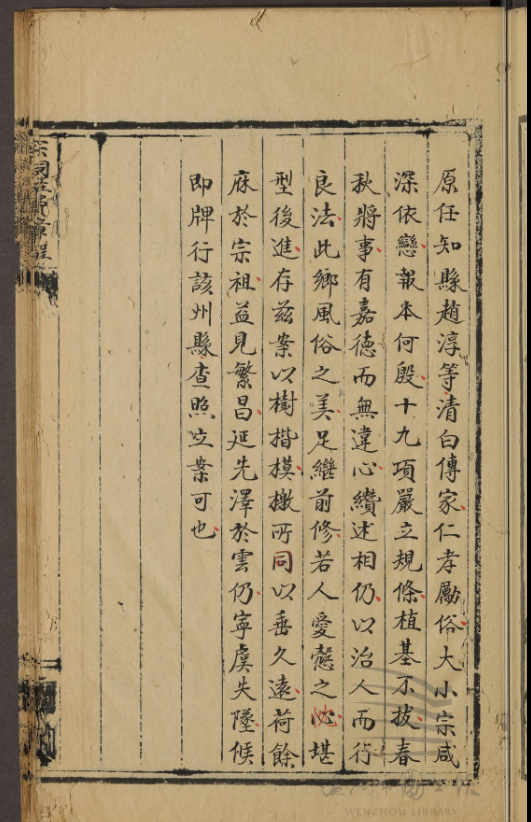 原任知縣趙淳等清白傳家仁孝勵俗大小宗咸
深依戀報本何殷十九項嚴立規條植基不拔春
秋將事有嘉德而無違心纘述相仍以治人而行
良法此鄉風俗之美足繼前修若人愛慤之沁堪
型後進存兹案以樹楷模檄所同以垂久遠荷餘
庥於宗祖益見繁昌延先澤於雲仍寧虞失墜候
即牌行該州縣查照立案可也
宗祠
章程
WENZHOU LIBRARY